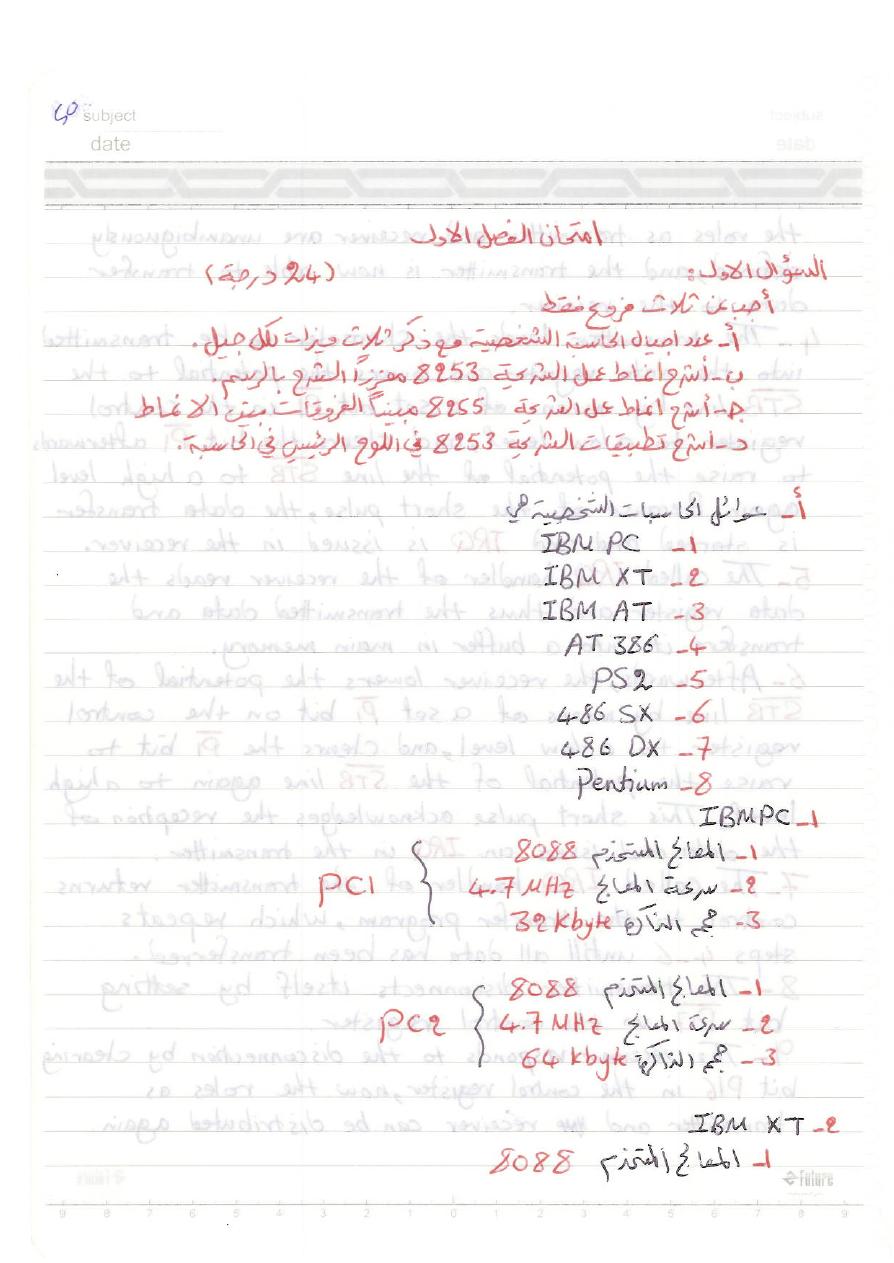 subject
date
امتحان الفصل الاول
السؤال الاول: (24 درجة)
أجب عن ثلاث فروع فقط
أ- عدد اجيال الحاسبة الشخصية مع ذكر ثلاث ميزات لكل جيل.
ب- أشرح انماط عمل الشريحة 8253 معززاً الشرح بالرسم.
ج- أشرح انماط عمل الشريحة 8255 مبيناً الفروقات بين الانماط
د- أشرح تطبيقات الشريحة 8253 في اللوح الرئيسي في الحاسبة.
أ- عوائل الحاسبات الشخصية هي
1- IBM PC
2- IBM XT
3- IBM AT
4- AT 386
5- PS2
6- 486 SX
7- 486 DX
8- Pentium
1- IBM PC
1- المعالج المستخدم 8088
2- سرعة المعالج 4.7 MHz
PC1
3- حجم الذاكرة 32 Kbyte
1- المعالج المستخدم 8088
2- سرعة المعالج 4.7 MHz
PC2
3- حجم الذاكرة 64 Kbyte
2- IBM XT
1- المعالج المستخدم 8088
Future
9 8 7 6 5 4 3 2 1 0 1 2 3 4 5 6 7 8 9